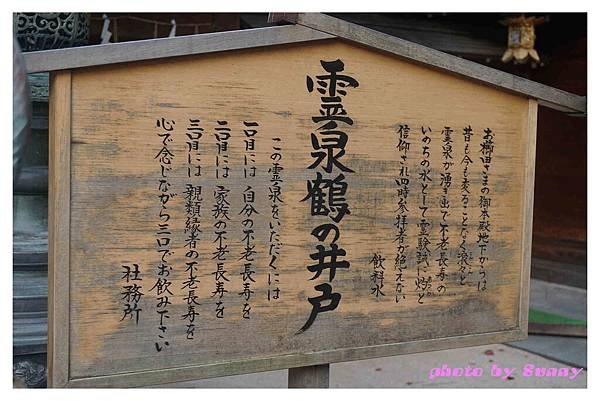 お櫛田さまの御本殿地下からは
昔も今も変ることなく滾々と
霊泉が湧き出で不老長寿の
いのちの水として霊験誠に灼と
信仰され四時参拝者が絶えない
飲料水
霊泉鶴の井戸
この霊泉をいただくには
一口目には 自分の不老長寿を
二口目には 家族の不老長寿を
三口目には 親類縁者の不老長寿を
心で念じながら三口でお飲み下さい
社務所
photo by Sunny